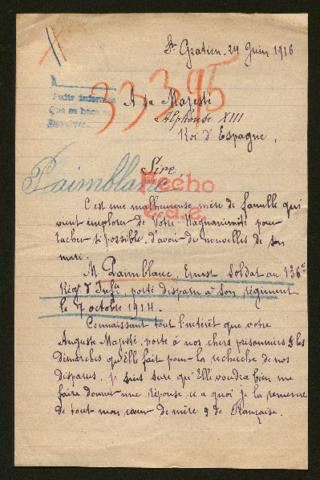 St Gratien, 24 Juin 1916
33.395
A Sa Majesté
Alphonse XIII
Roi d'Espagne,
Paimblanc
Sire
Hecho
C'est une malheureuse mère de famille qui
vient implorer de Votre Magnanimité pour
tacher si possible d'avoir des nouvelles de son
mari.
M Paimblanc, Ernest soldat au 136e
Régt d'Infie porté disparu à son régiment
le 7 octobre 1914.
Connaissant tout l'intérêt que votre
Auguste Majesté, porte à nos chers prisonniers & les
démarches qu'elle fait pour la recherche de nos
disparus, je suis sure qu'Elle voudra bien me
faire donner une réponse ce a quoi je la remercie
de tout mon cœur de mère & de Française.